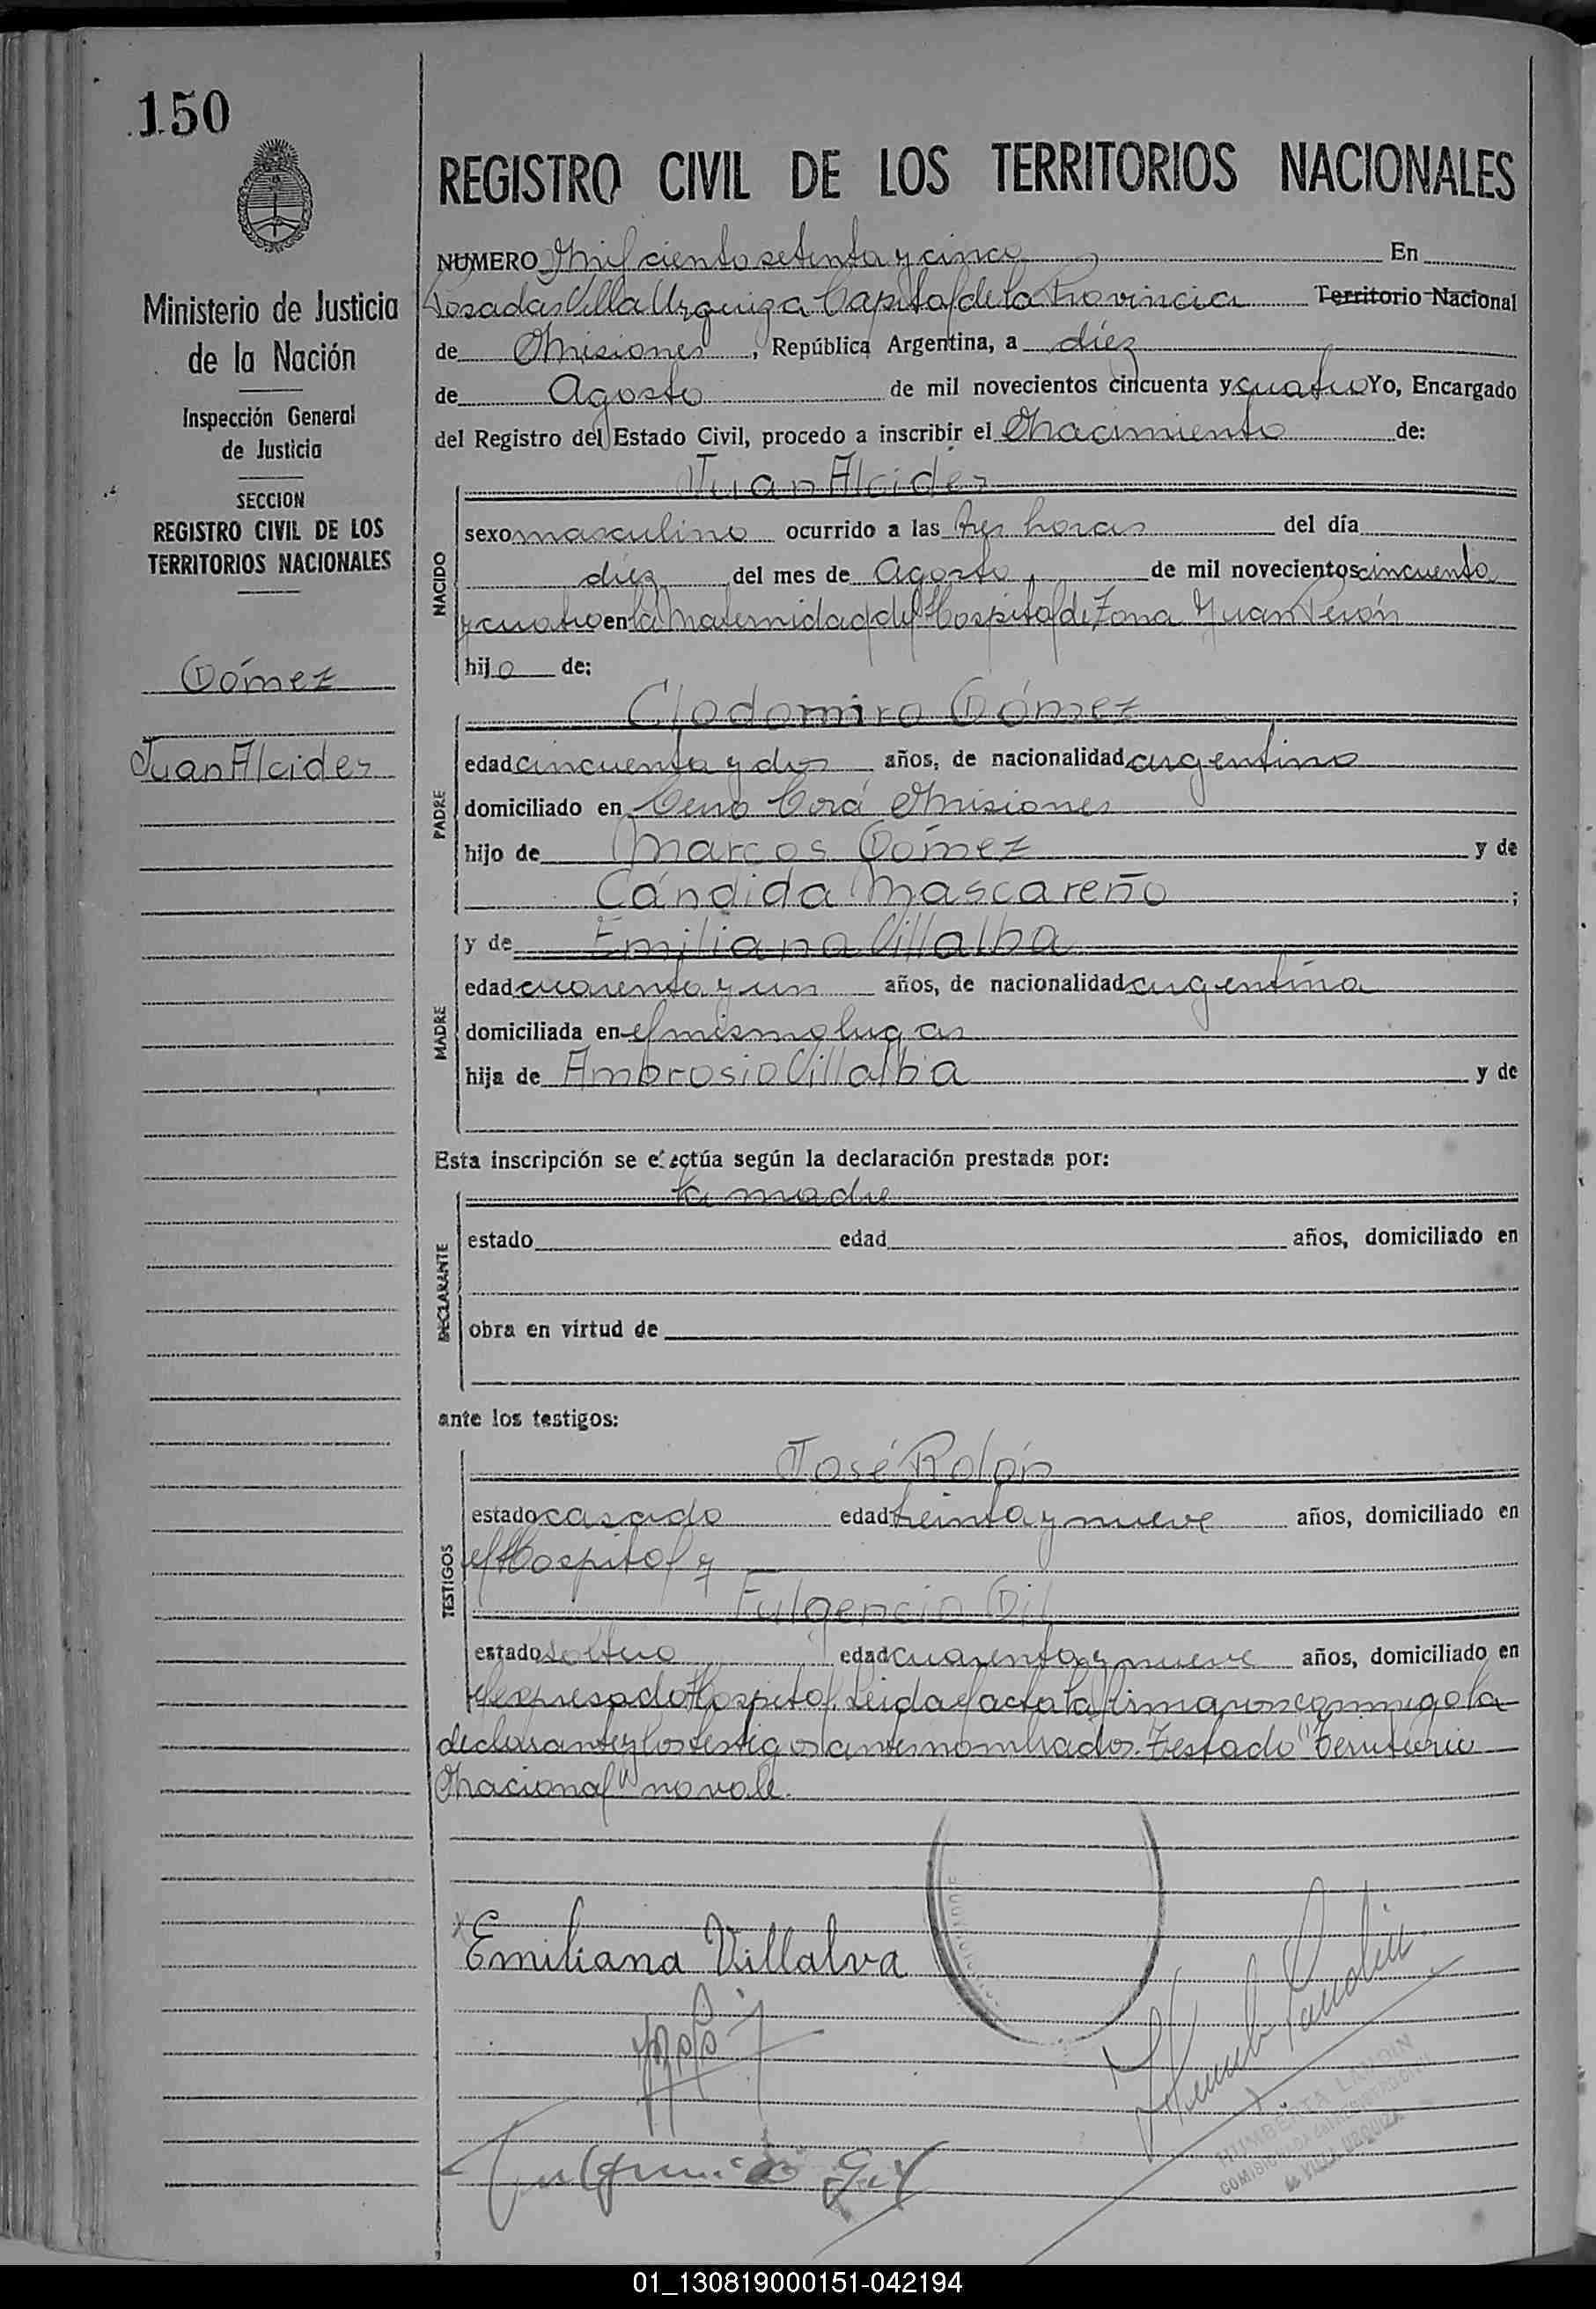 150
REGISTRO CIVIL DE LOS TERRITORIOS NACIONALES
Ministerio de Justicia
de la Nación
Inspección General
de Justicia
SECCION
REGISTRO CIVIL DE LOS
TERRITORIOS NACIONALES
Gómez
Juan Alcides
NUMERO Mil ciento setenta y cinco En
Posadas Villa Urquiza Capital de la Provincia Territorio Nacional
de Misiones, República Argentina, a diéz
de Agosto de mil novecientos cincuenta y cuatro Yo, Encargado
del Registro del Estado Civil, procedo a inscribir el Nacimiento de:
NACIDO
Juan Alcides
sexo masculino ocurrido a las tres horas del día
diéz del mes de Agosto, de mil novecientos cincuenta
y cuatro en la Maternidad del Hospital de Zona Juan Perón
hijo de:
PADRE
Clodomiro Gómez
edad cincuenta y dos años, de nacionalidad argentino
domiciliado en Cerro Corá Misiones
hijo de Marcos Gómez y de
Cándida Mascareño ;
MADRE
y de Emiliana Villalba
edad cuarenta y un años, de nacionalidad argentina
domiciliada en el mismo lugar
hija de Ambrosio Villalba y de
Esta inscripción se efectúa según la declaración prestada por:
DECLARANTE
la madre
estado edad años, domiciliado en
obra en virtud de
ante los testigos:
TESTIGOS
José Rolón
estado casado edad treinta y nueve años, domiciliado en
el Hospital y
Fulgencio Gil
estado soltero edad cuarenta y nueve años, domiciliado en
el expresado Hospital. Leida el acta la firmaron conmigo la
declarante y los testigos antes nombrados. Testado "Territorio
Nacional" no vale.
Emiliana Villalva
Fulgencio Gil
HUMBERTA LANDIN
VILLA URQUIZA
01_130819000151-042194